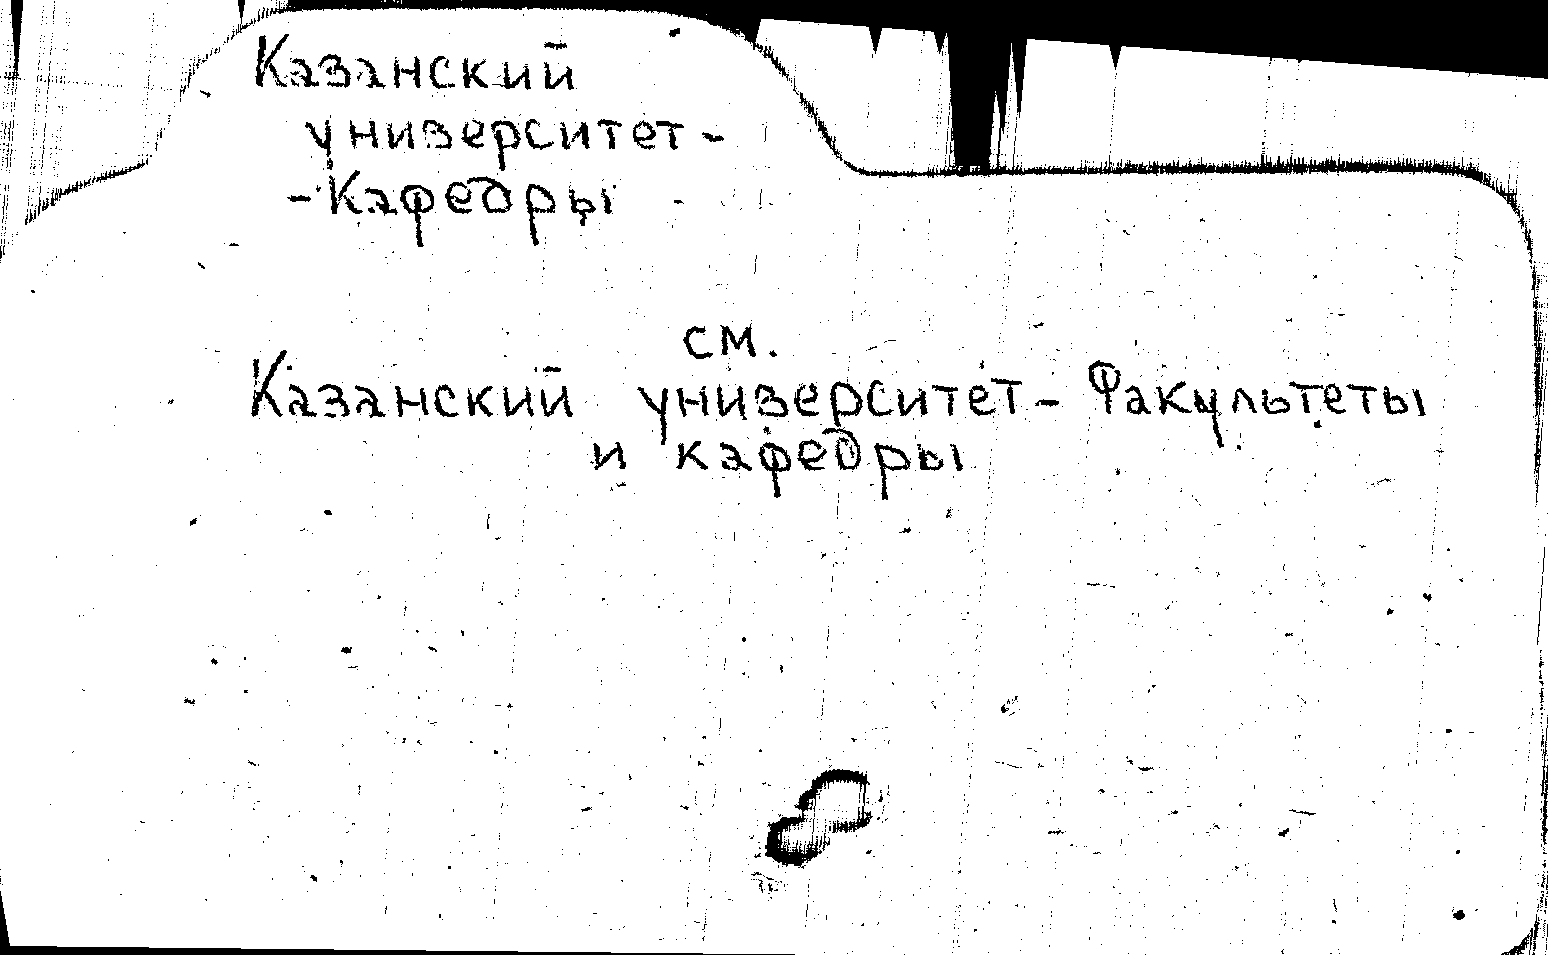 Казанский
университет -
- Кафедры
см.
Казанский университет - Факультеты
и кафедры